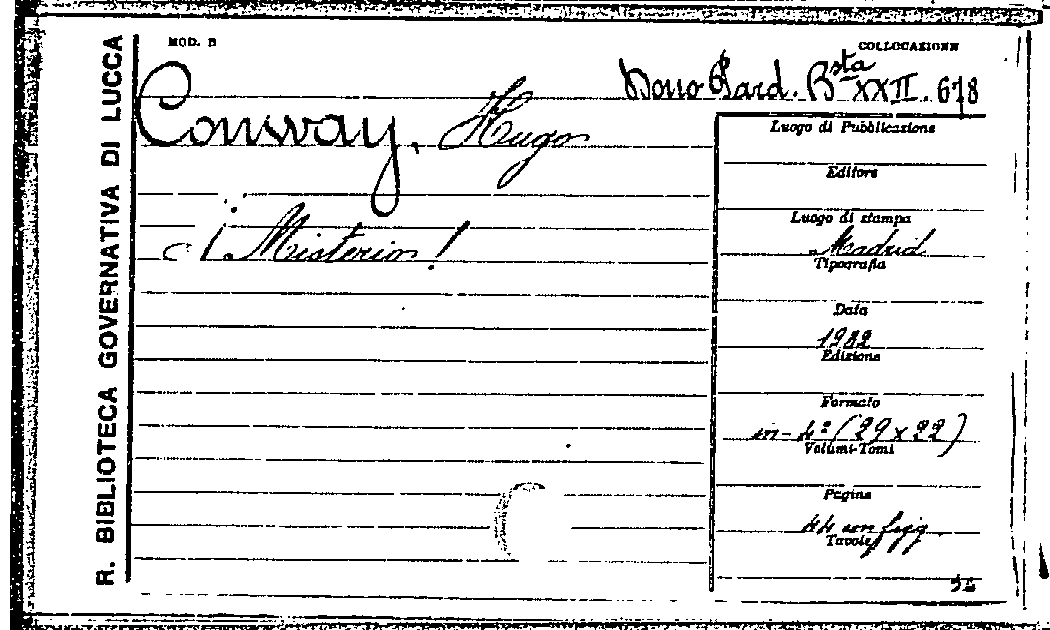 R. BIBLIOTECA GOVERNATIVA DI LUCCA
MOD. B
COLLOCAZIONE
Dono Pard. Bsta XXII. 678
Conway, Hugo
¡ Misterio !
Luogo di Pubblicazione
Editore
Luogo di stampa
Madrid
Tipografia
Data
1932
Edizione
Formato
in-4º (29 x 22)
Volumi-Tomi
Pagine
44 con figg.
Tavole